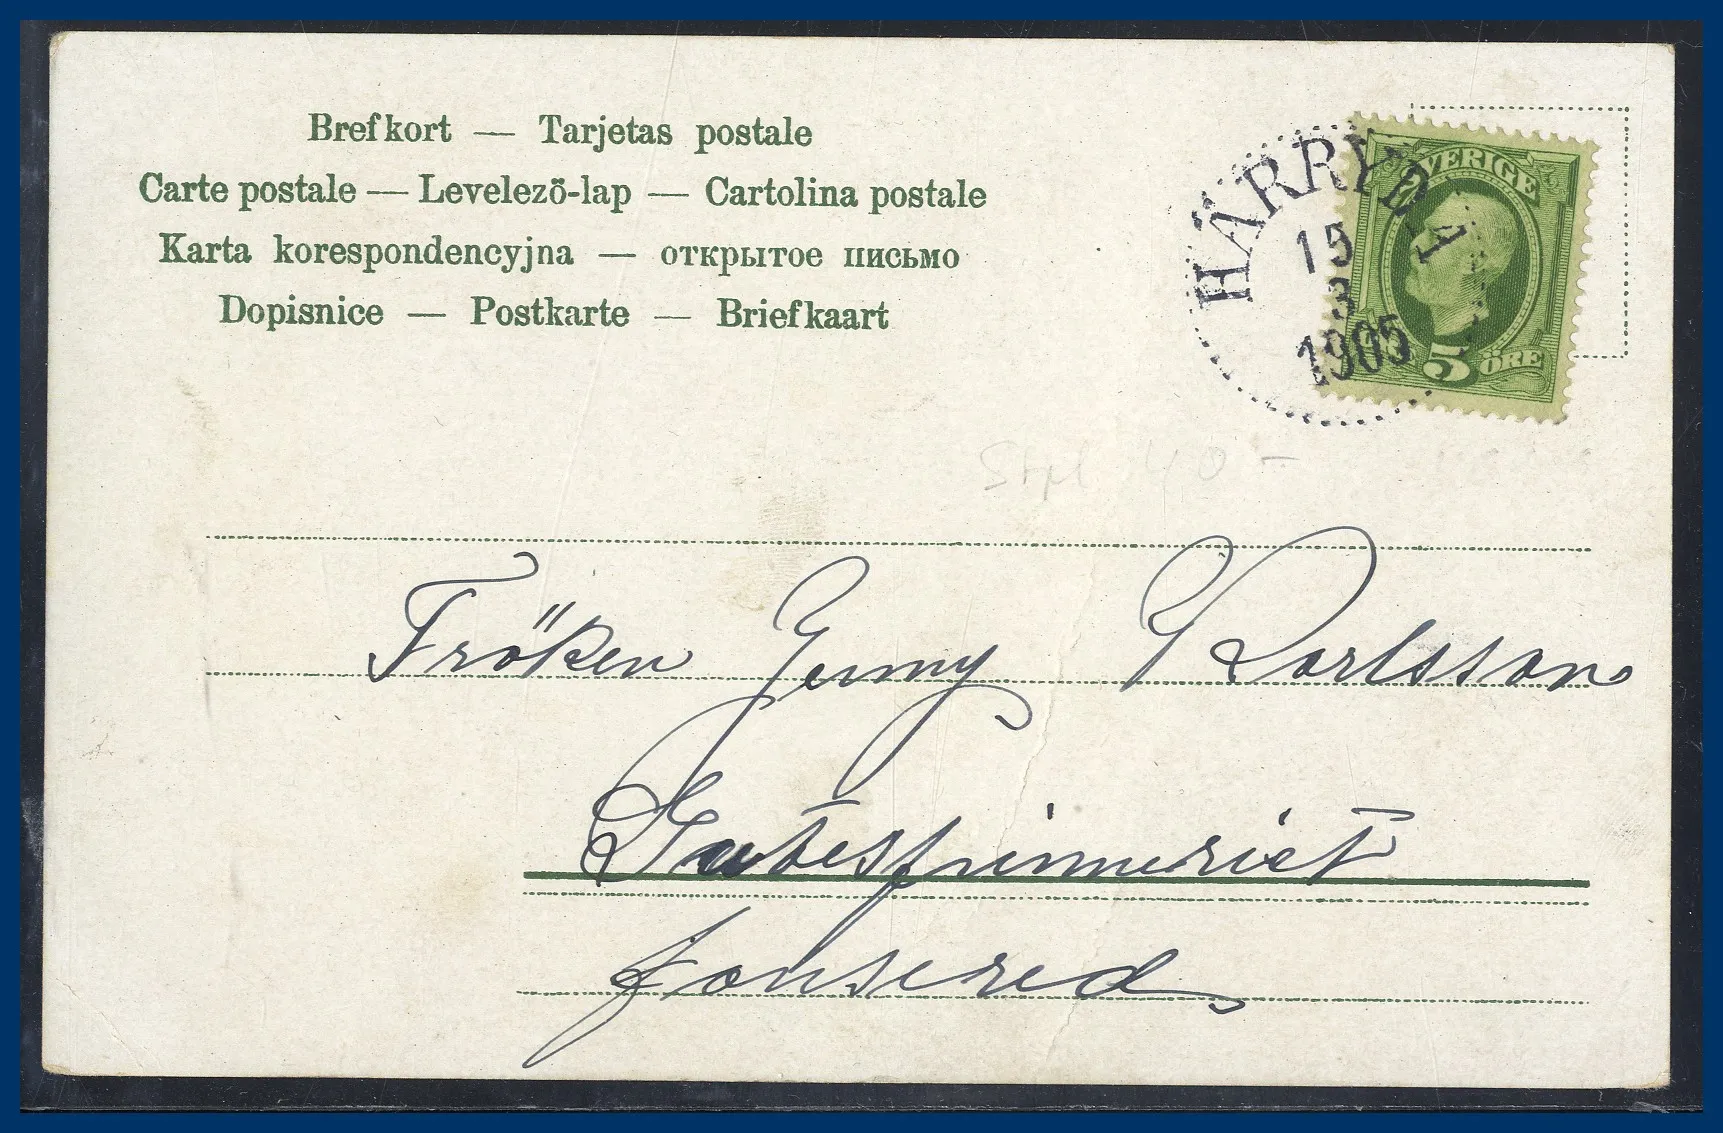 Brefkort — Tarjetas postale
Carte postale — Levelező-lap — Cartolina postale
Karta korespondencyjna — открытое письмо
Dopisnice — Postkarte — Briefkaart
HÄRRYDA
15
3
1905
SVERIGE
5 ÖRE
Stpl 40 -
Fröken Jenny Karlsson
Jutespinneriet
Jonsered